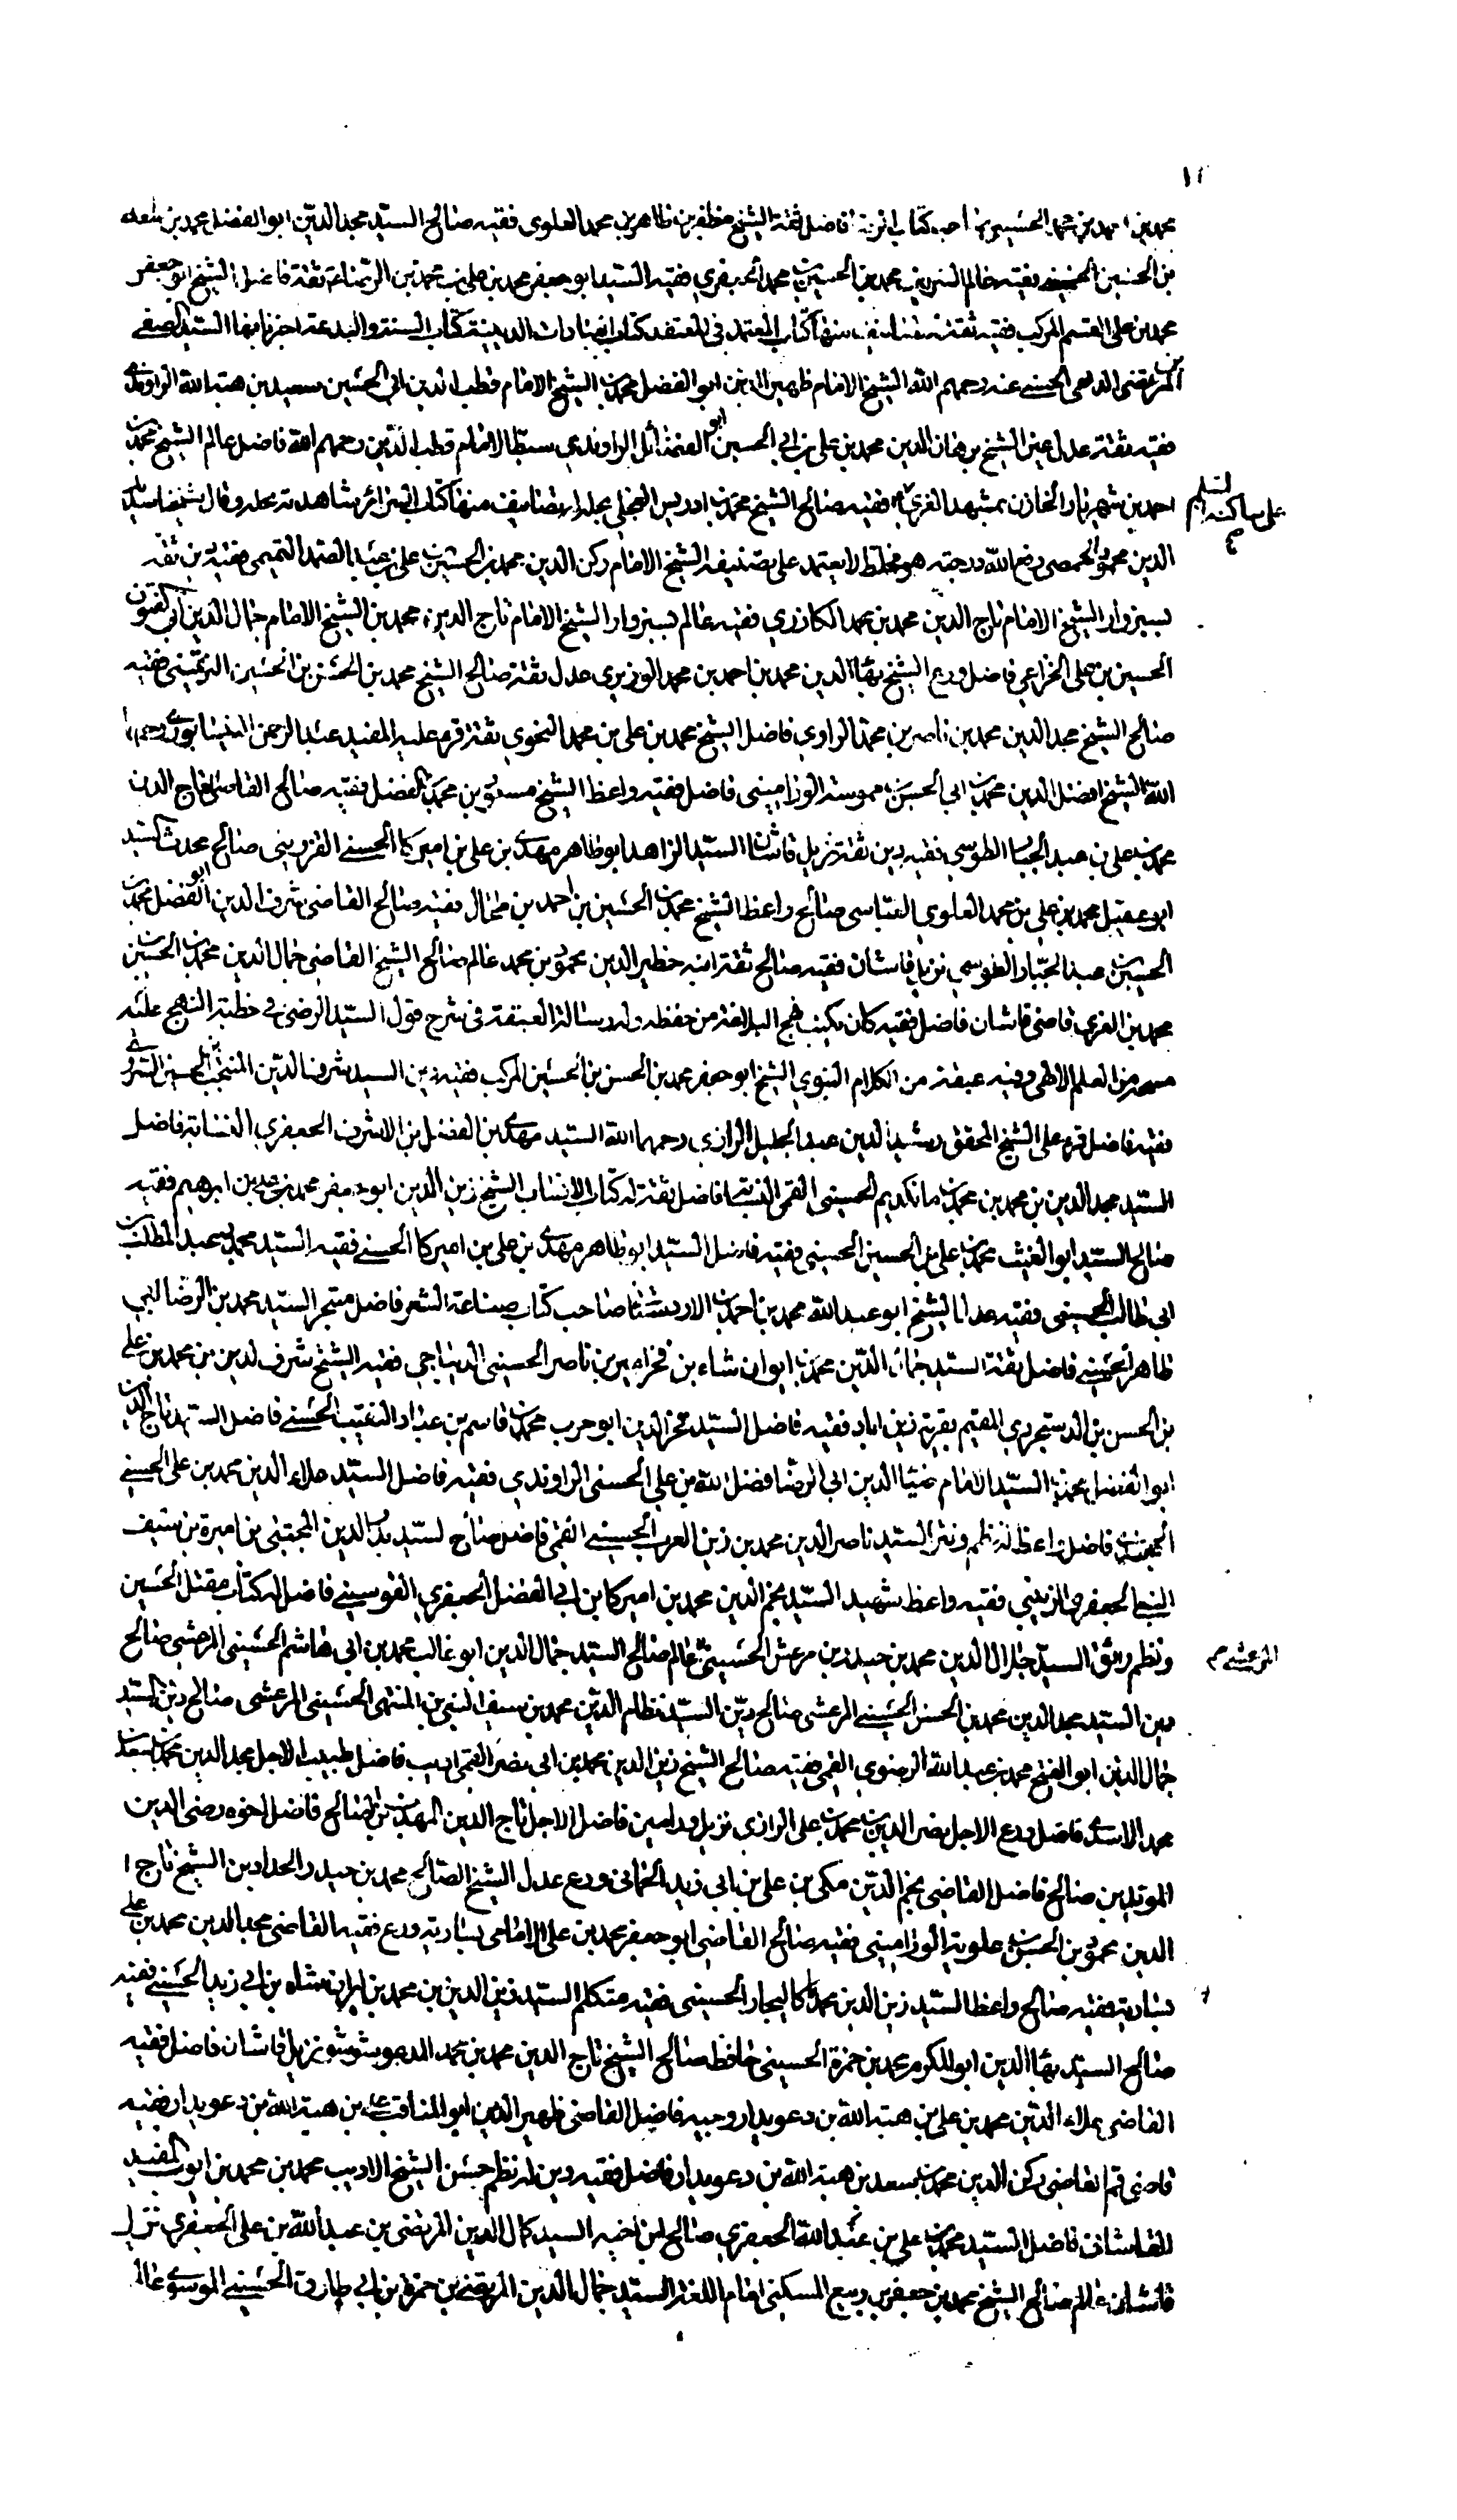 محمد بن احمد بن محمد الحسيني صاحب كتاب فاضل ثقة الشيخ مظفر بن طاهر بن محمد العلوي فقيه صالح السيد مجد الدين ابو الفضل محمد بن
بن الحسين الحسيني فقيه عالم محمد بن الحسين بن محمد الجعفري فقيه السيد ابو جعفر محمد بن علي بن محمد بن ثقة فاضل الشيخ ابو جعفر
محمد بن علي القسم المركب فقيه ثقة منها كتاب المعتمد في المعتقد كتاب الدينية كتاب السنة والبدعة اخبرنا بها السيد الصفي
المرتضى بن الداعي الحسني عنه رحمهم الله الشيخ الامام ظهير الدين ابو الفضل محمد بن الشيخ الامام قطب الدين ابي الحسين سعيد بن هبة الله الراوندي
فقيه ثقة عدل عين الشيخ برهان الدين محمد بن علي بن ابي الحسين ابو الفضائل الراوندي سبط الامام قطب الدين رحمهم الله فاضل عالم الشيخ محمد بن
احمد بن شهريار الخازن بمشهد الغري فقيه صالح الشيخ محمد بن ادريس العجلي بحلة له تصانيف منها كتاب السرائر شاهدته بحلة وقال شيخنا سديد
على ساكنه السلم
الدين محمود الحمصي رفع الله درجته هو مخلط لا يعتمد على تصنيفه الشيخ الامام ركن الدين محمد بن الحسين بن علي بن عبد الصمد التميمي فقيه دين ثقة
بسبزوار الشيخ الامام تاج الدين محمد بن محمد الكازري فقيه عالم بسبزوار الشيخ الامام تاج الدين محمد بن الشيخ الامام جمال الدين ابي الفتوح
الحسين بن علي الخزاعي فاضل ورع الشيخ بهاء الدين محمد بن احمد بن محمد الوزيري عدل ثقة صالح الشيخ محمد بن الحسن بن الحسين فقيه
صالح الشيخ مجد الدين محمد بن ناصر بن محمد الراوي فاضل الشيخ محمد بن علي بن محمد النحوي ثقة قرء عليه المفيد عبد الرحمن النيسابوري رحمهما
الله الشيخ افضل الدين محمد بن ابي الحسن بن مموسة الوراميني فاضل فقيه واعظ الشيخ بن محمد بن الفضل فقيه صالح القاضي تاج الدين
محمد بن علي بن عبد الجبار الطوسي فقيه دين ثقة نزيل قاشان السيد الزاهد ابو طاهر مهدي بن علي بن اميركا الحسني القزويني صالح محدث السيد
ابو عقيل محمد بن علي بن محمد العلوي العباسي صالح واعظ الشيخ محمد بن الحسين بن احمد بن طحال فقيه صالح القاضي شرف الدين ابو الفضل محمد بن
الحسين بن عبد الجبار الطوسي نزيل قاشان فقيه صالح ثقة ابنه خطير الدين محمود بن محمد عالم صالح الشيخ القاضي جمال الدين محمد بن الحسين
محمد بن الغري قاضي قاشان فاضل فقيه كان يكتب نهج البلاغة من حفظه وله رسالة العبقة في شرح قول السيد الرضي في خطبة النهج عليه
مسحة من العلم الالهي وفيه عبقة من الكلام النبوي الشيخ ابو جعفر محمد بن الحسن بن الحسين المركب فقيه دين السيد شرف الدين المنتجب بن الحسين السروي
فقيه فاضل قرء على الشيخ المحقق رشيد الدين عبد الجليل الرازي رحمهما الله السيد مهدي بن الفضل بن الاشرف الجعفري النسابة فاضل
السيد مجد الدين بن محمد بن محمد بن مانكديم الحسيني القمي النسابة فاضل ثقة له كتاب الانساب الشيخ زين الدين ابو جعفر محمد بن ابرهيم فقيه
صالح السيد ابو الغيث محمد بن علي بن الحسين الحسيني فقيه فاضل السيد ابو طاهر مهدي بن علي بن اميركا الحسني فقيه السيد محمد بن عبد المطلب بن
ابي طالب الحسيني فقيه عدل الشيخ ابو عبد الله محمد بن احمد بن صاحب كتاب صناعة الشعر فاضل متبحر السيد محمد بن الرضا ابي
طاهر الحسيني فاضل ثقة السيد جمال الدين محمد بن ايران شاه بن فخراور بن ناصر الحسيني الديباجي فقيه الشيخ شرف الدين بن محمد بن علي
بن الحسن بن الدستجردي المقيم بقرية زين اباد فقيه فاضل السيد فخر الدين ابو حرب محمد بن قاسم بن عباد النقيب الحسني فاضل السيد تاج الدين
ابو الفضل محمد بن السيد الامام ضياء الدين ابي الرضا فضل الله بن علي الحسني الراوندي فقيه فاضل السيد علاء الدين محمد بن علي الحسني
فاضل واعظ له نظم ونثر السيد ناصر الدين محمد بن زين العرب الحسيني القمي فاضل صالح السيد الدين المجتبى بن اميرة بن سيف
النبي الجعفري الزينبي فقيه واعظ شهيد السيد نجم الدين محمد بن اميركا بن ابي الفضل الجعفري القوسيني فاضل له كتاب مقتل الحسين
ونظم رائق السيد جلال الدين محمد بن حيدر بن مرعش الحسيني عالم صالح السيد جمال الدين ابو غالب محمد بن ابي هاشم الحسيني المرعشي صالح
المرعشي
دين السيد مجد الدين محمد بن الحسن الحسيني المرعشي صالح دين السيد نظام الدين محمد بن سيف النبي بن المنتهى الحسيني المرعشي صالح دين السيد
جمال الدين ابو الفتح محمد بن عبد الله الرضوي القمي فقيه صالح الشيخ زين الدين محمد بن ابي نصر القمي اديب فاضل طبيب الاجل مجد الدين محمد بن
محمد الاسدي فاضل ورع الاجل نصر الدين محمد بن علي الرازي نزيل ورامين فاضل الاجل تاج الدين صالح فاضل اخوه رضي الدين
المؤيد بن صالح فاضل القاضي نجم الدين مكي بن علي بن ابي زيد ورع عدل الشيخ الصالح محمد بن حيدر الحداد بن الشيخ تاج ا
الدين محمود بن الحسن بن علوية الوراميني فقيه صالح القاضي ابو جعفر محمد بن علي الامامي بسارية ورع فقيه القاضي مجد الدين محمد بن علي
بسارية فقيه صالح واعظ السيد زين الدين الحسيني فقيه متكلم السيد زين الدين بن محمد بن ايرانشاه بن ابي زيد الحسيني فقيه
صالح السيد بهاء الدين ابو المكرم محمد بن حمزة الحسيني حافظ صالح الشيخ تاج الدين محمد بن محمد المدعو بشوشو نزيل قاشان فاضل فقيه
القاضي علاء الدين محمد بن علي بن هبة الله بن دعويدار وجيه فاضل القاضي ظهير الدين ابو المناقب علي بن هبة الله بن دعويدار فقيه
قاضي قم القاضي ركن الدين محمد بن سعد بن هبة الله بن دعويدار فاضل فقيه دين له نظم حسن الشيخ الاديب محمد بن محمد بن ايوب المفيد
القاساني فاضل السيد محمد بن علي بن عبد الله الجعفري صالح ابن اخيه السيد كمال الدين المرتضى بن عبد الله بن علي الجعفري نزيل
قاشان عالم صالح الشيخ محمد بن جعفر بن ربيع السكني امام اللغة السيد جمال الدين المرتضى بن حمزة بن ابي صادق الحسيني الموسوي عالم